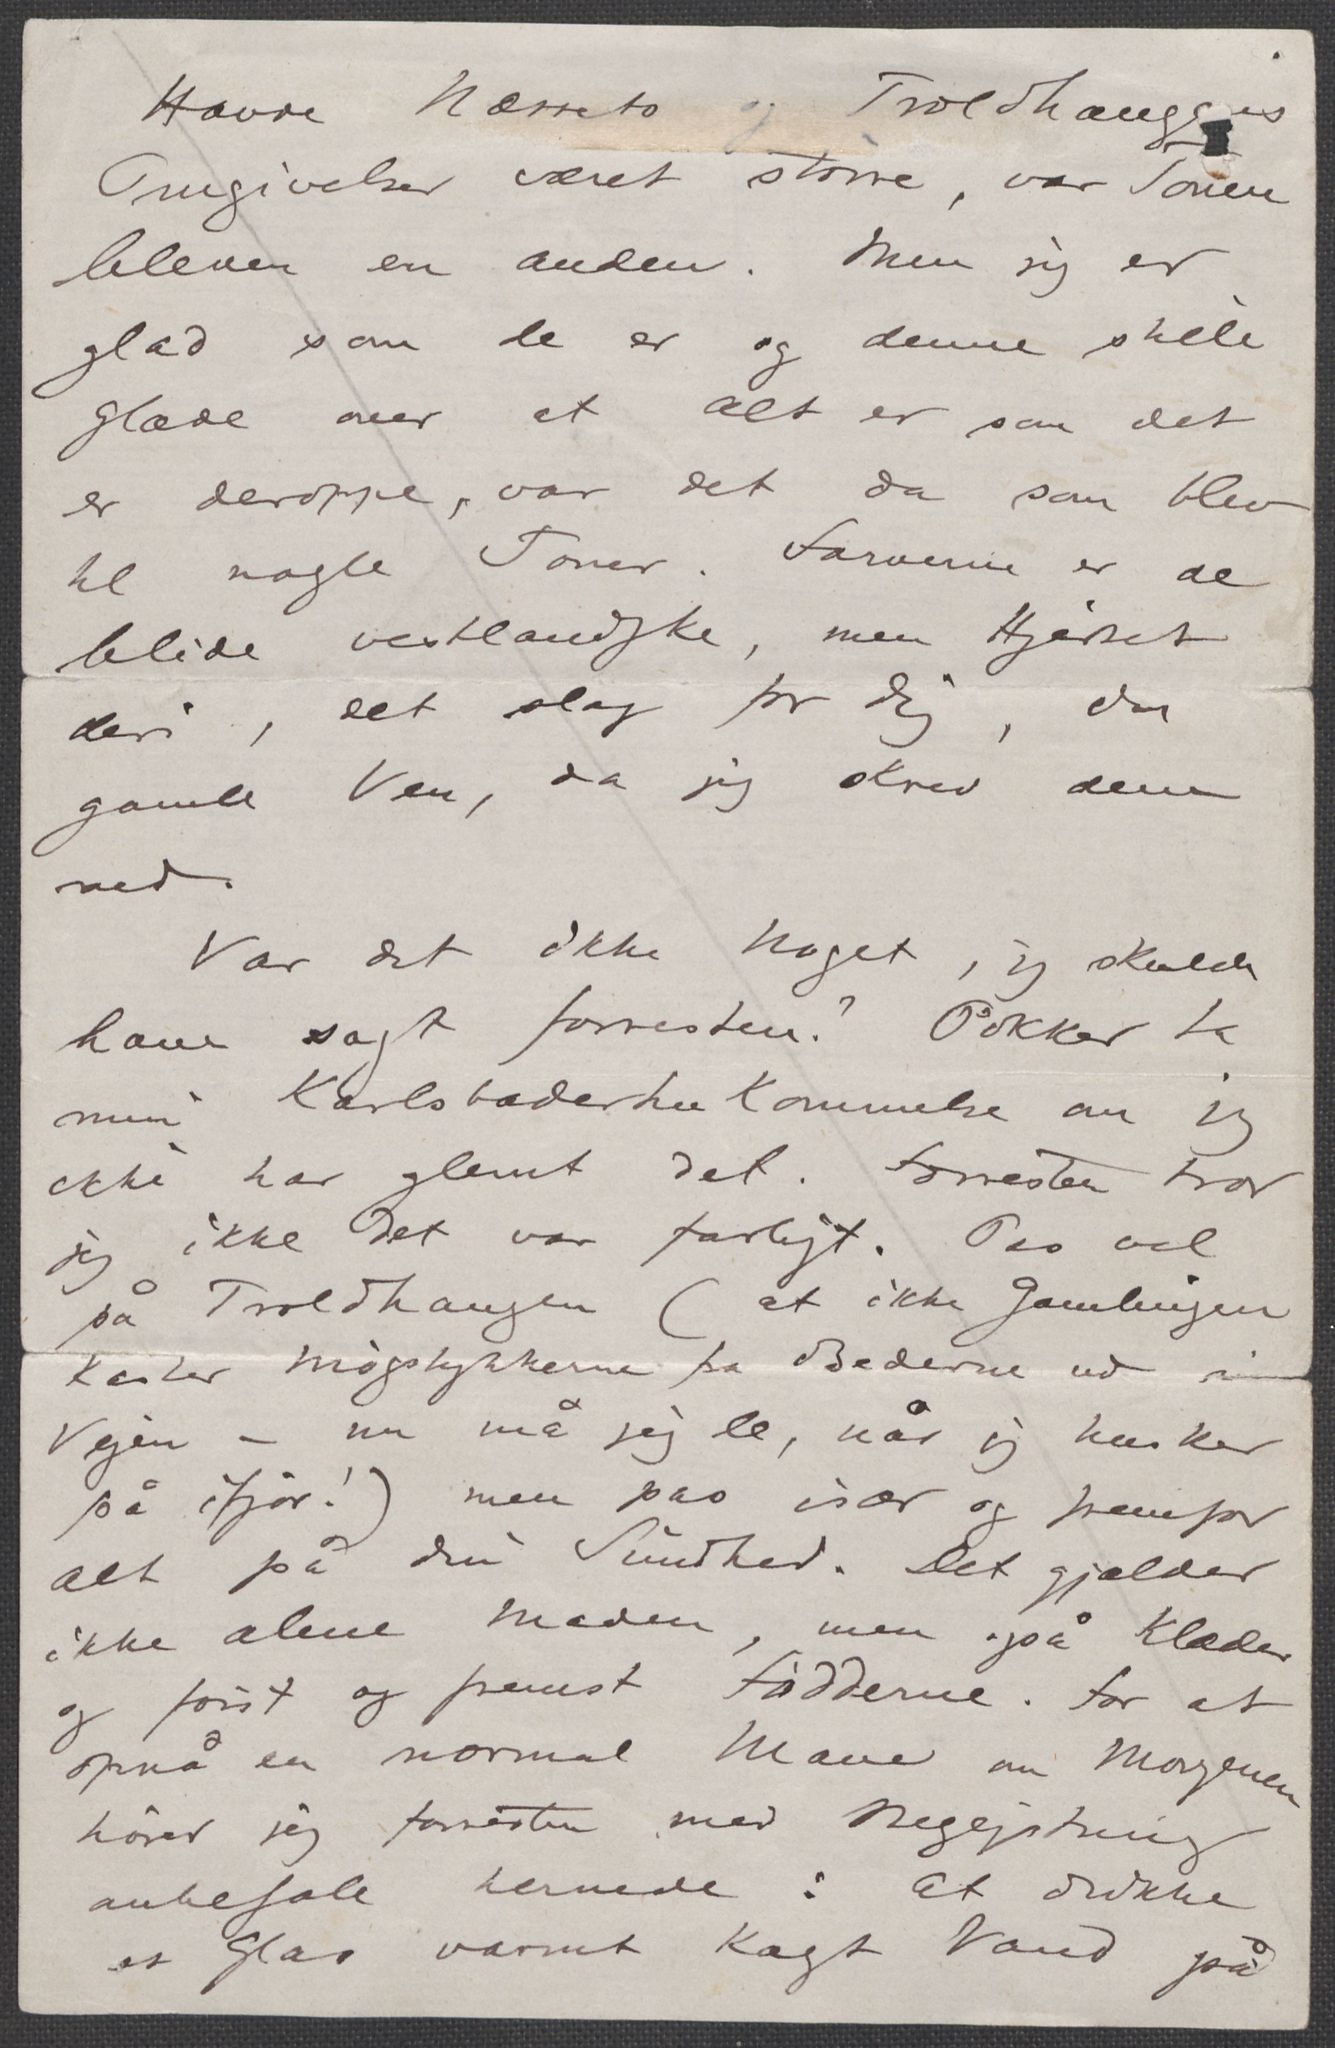 Havde Næsset og Troldhaugens
Omgivelser været større, var Tonen
bleven en anden. Men jeg er
glad som de er og denne stille
Glæde over at alt er som det
er deroppe, var det da som blev
til nogle Toner. Farverne er de
blide vestlandske, men Hjertet
deri, det slog for Dig, du
gamle Ven, da jeg skrev dem
ned.
Var det ikke noget, jeg skulde
have sagt forresten? Pokker ta
min Karlsbaderhukommelse om jeg
ikke har glemt det. Forresten tror
jeg ikke det var farligt. Pas vel
på Troldhaugen (at ikke Gamlingen
kaster Møgstykkerne fra Bederne ud i
Vejen – nu må jeg le, når jeg husker
på ifjor!) men pas især og fremfor
alt på din Sundhed. Det gjælder
ikke alene Maden, men på Klæder
og først og fremst Fødderne. For at
opnå en normal Mave om Morgenen
hører jeg forresten med Begejstring
anbefale hernede: at drikke
et Glas varmt kogt Vand på